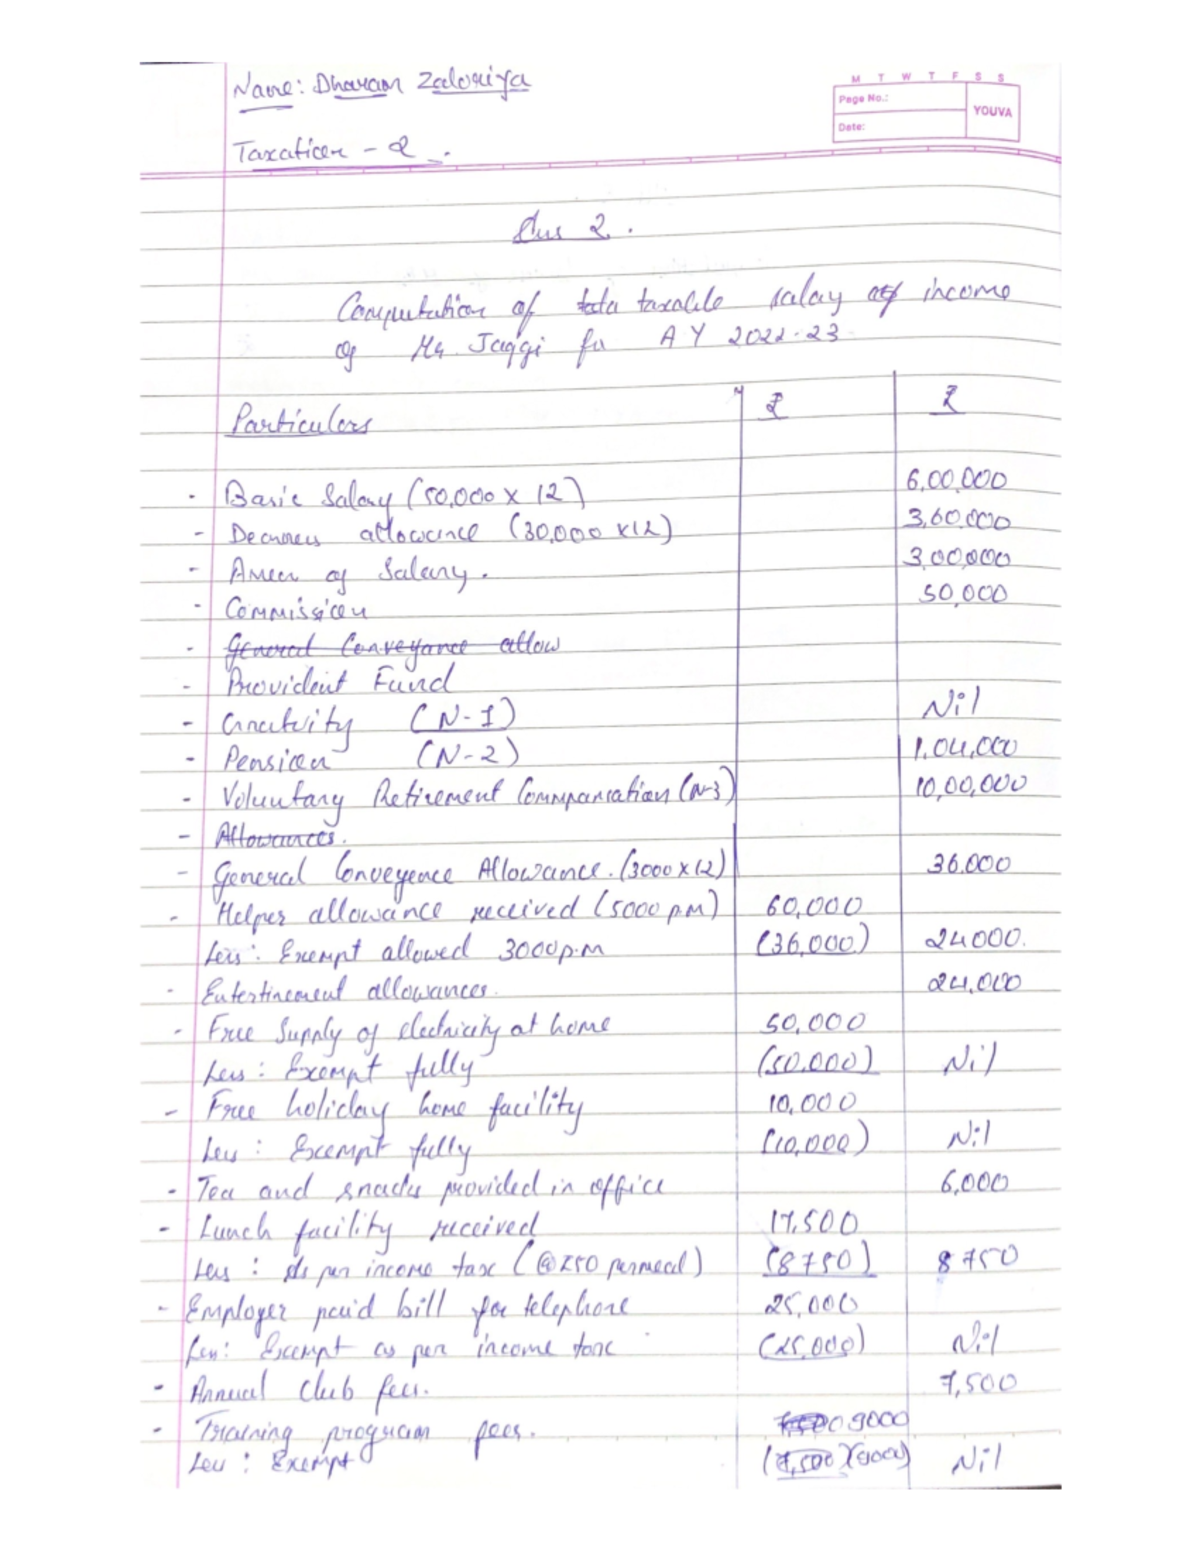 Name: Dharam Zaloriya
M T W T F S S
Page No.:
YOUVA
Date:
Taxation - 2.
Ans 2.
Computation of tota taxable salary of income
of Mr. Jaggi for AY 2022-23
Particulars ₹ ₹
- Basic Salary (50,000 x 12) 6,00,000
- Dearness allowance (30,000 x12) 3,60,000
- Arrear of Salary. 3,00,000
- Commission 50,000
- General Conveyance allow
- Provident Fund
- Gratuity (N-1) Nil
- Pension (N-2) 1,04,000
- Voluntary Retirement Compansation (N-3) 10,00,000
- Allowances.
- General Conveyence Allowance. (3000 x 12) 36.000
- Helper allowance received (5000 p.m) 60,000
Less: Exempt allowed 3000p.m (36,000) 24000.
- Entertinement allowances. 24,000
- Free Supply of electricity at home 50,000
Less: Exempt fully (50.000) Nil
- Free holiday home facility 10,000
Less: Exempt fully (10,000) Nil
- Tea and snacks provided in office 6,000
- Lunch facility received 17,500
Less: As per income tax (@ ₹50 permeal) (8750) 8750
- Employer paid bill for telephone 25,000
Less: Exempt as per income tax (25,000) Nil
- Annual Club fees. 7,500
- Training program fees. 9000
Less: Exempt (7,500)(9000) Nil